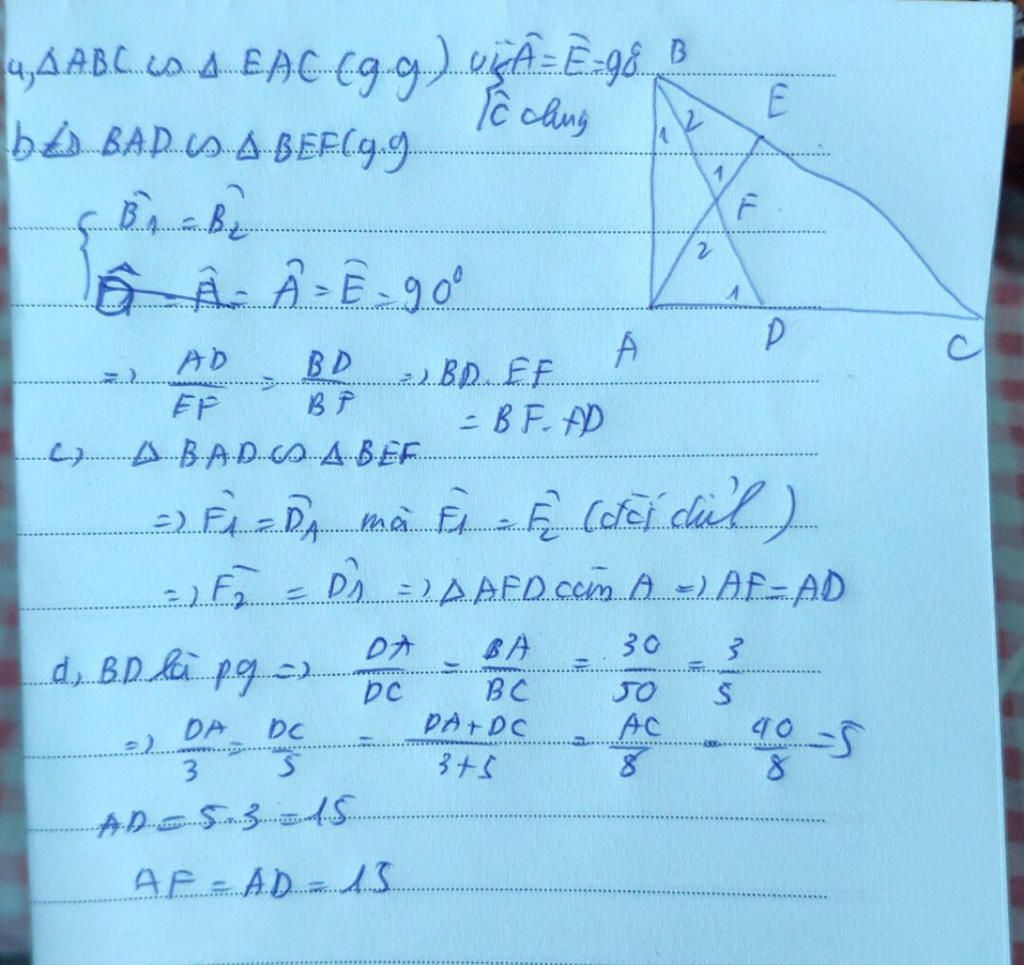 a, ΔABC ∽ Δ EAC (g.g) vì { Â = Ê = 90
Ĉ chung
b Δ BAD ∽ Δ BEF (g.g
{ B̂1 = B̂2
Â = Ê = 90⁰
=> AD/EF = BD/BF => BD. EF
= BF. AD
c) Δ BAD ∽ Δ BEF
=> F̂1 = D̂1 mà F̂1 = F̂2 (đối đỉnh)
=> F̂2 = D̂1 => Δ AFD cân A => AF = AD
d, BD là pg => DA/DC = BA/BC = 30/50 = 3/5
=> DA/3 = DC/5 = DA+DC/3+5 = AC/8 = 40/8 = 5
AD = 5.3 = 15
AF = AD = 15
B
E
1 2
1
F
2
1
A
D
C